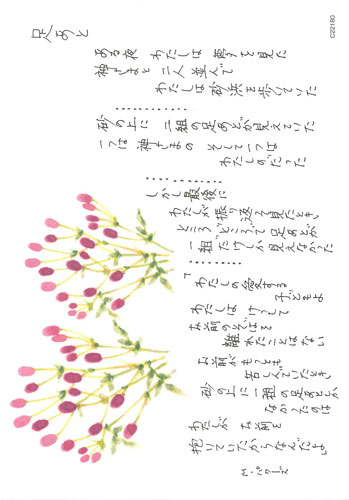 足あと
ある夜 わたしは 夢を見た
神さまと 二人並んで
わたしは 砂浜を歩いていた
…………
砂の上に 二組の足あとが見えていた
一つは 神さまの そして一つは
わたしのだった
…………
しかし最後に
わたしが振り返って見たとき
ところどころで 足あとが
一組だけしか見えなかった
…………
「わたしの愛する
子どもよ
わたしは けっして
お前のそばを
離れたことはない
お前がもっとも
苦しんでいたとき
砂の上に 一組の足あとしか
なかったのは
わたしが お前を
抱いていたからなんだよ」
M・パワーズ
C22180